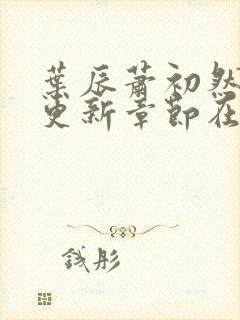 葉辰蕭初然
更新章節在
錢彤